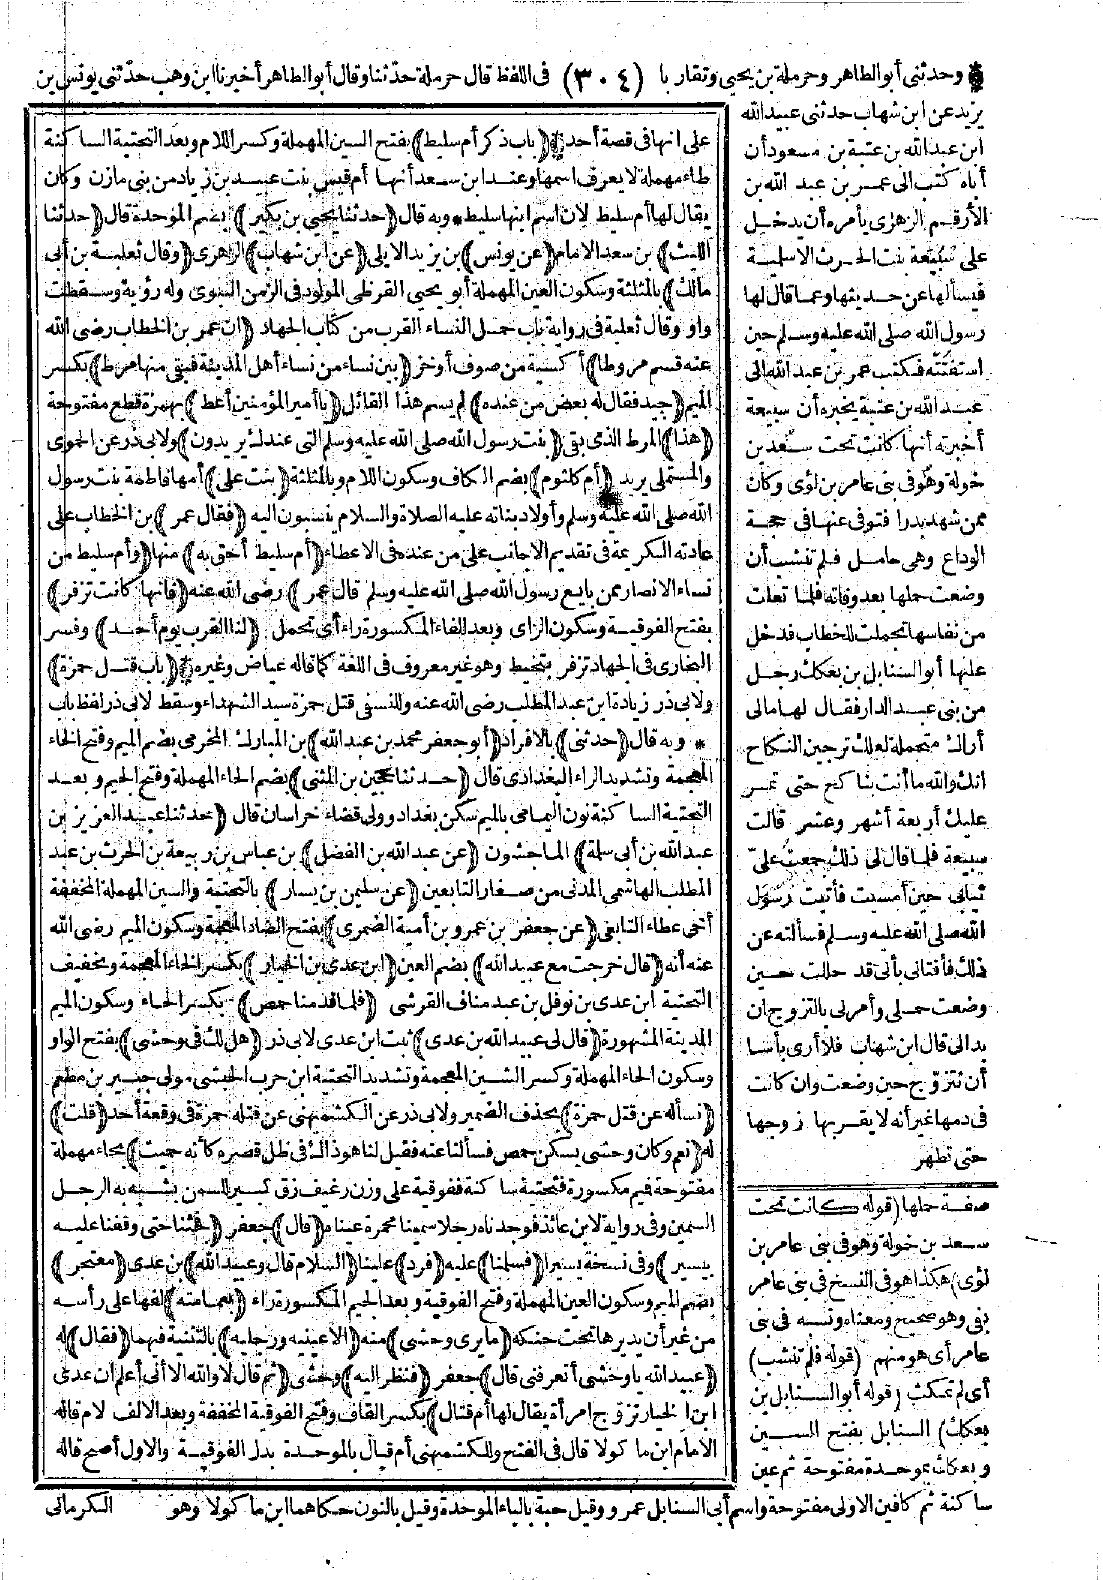 * وحدثنى أبو الطاهر وحرملة بن يحيى وتقاربا (٣٠٤) فى اللفظ قال حرملة حدثنا وقال أبو الطاهر أخبرنا ابن وهب حدثنى يونس بن
يزيد عن ابن شهاب حدثنى عبيد الله
ابن عبد الله بن عتبة بن مسعود أن
أباه كتب الى عمر بن عبد الله بن
الأرقم الزهرى يأمره أن يدخل
على سبيعة بنت الحرث الاسلمية
فيسألها عن حديثها وعما قال لها
رسول الله صلى الله عليه وسلم حين
استفتته فكتب عمر بن عبد الله الى
عبد الله بن عتبة يخبره أن سبيعة
أخبرته أنها كانت تحت سعد بن
خولة وهو فى بنى عامر بن لؤى وكان
ممن شهد بدرا فتوفى عنها فى حجة
الوداع وهى حامل فلم تنشب أن
وضعت حملها بعد وفاته فلما تعلت
من نفاسها تجملت للخطاب فدخل
عليها أبو السنابل بن بعكك رجل
من بنى عبد الدار فقال لها مالى
أراك متجملة لعلك ترجين النكاح
انك والله ما أنت بناكح حتى تمر
عليك أربعة أشهر وعشر قالت
سبيعة فلما قال لى ذلك جمعت علىّ
ثيابى حين أمسيت فأتيت رسول
الله صلى الله عليه وسلم فسألته عن
ذلك فأفتانى بأنى قد حللت حين
وضعت حملى وأمرنى بالتزوج ان
بدا لى قال ابن شهاب فلا أرى بأسا
أن تتزوج حين وضعت وان كانت
فى دمها غير أنه لا يقربها زوجها
حتى تطهر
صفة حملها (قوله كانت تحت
سعد بن خولة وهو فى بنى عامر بن
لؤى) هكذا هو فى النسخ فى بنى عامر
بفى وهو صحيح ومعناه ونسبه فى بنى
عامر أى هو منهم (قوله فلم تنشب)
أى لم تمكث (قوله أبو السنابل بن
بعكك) السنابل بفتح السين
وبعكك بموحدة مفتوحة ثم عين
ساكنة ثم كافين الاولى مفتوحة واسم أبى السنابل عمرو وقيل حبة بالباء الموحدة وقيل بالنون حكاهما ابن ماكولا وهو
على انها فى قصة أحد * (باب ذكر أم سليط) بفتح السين المهملة وكسر اللام وبعد التحتية الساكنة
طاء مهملة لا يعرف اسمها وعند ابن سعد أنها أم قيس بنت عبيد بن زياد من بنى مازن وكان
يقال لها أم سليط لان اسم ابنها سليط * وبه قال (حدثنا يحيى بن بكير) بضم الموحدة قال (حدثنا
الليث) بن سعد الامام (عن يونس) بن يزيد الايلى (عن ابن شهاب) الزهرى (وقال ثعلبة بن أبى
مالك) بالمثلثة وسكون العين المهملة أبو يحيى القرظى المولود فى الزمن النبوى وله رؤية وسقطت
واو وقال ثعلبة فى رواية باب حمل النساء القرب من كتاب الجهاد (ان عمر بن الخطاب رضى الله
عنه قسم مروطا) أكسية من صوف أو خز (بين نساء من نساء أهل المدينة فبقى منها مرط) بكسر
الميم (جيد فقال له بعض من عنده) لم يسم هذا القائل (يا أمير المؤمنين أعط) بهمزة قطع مفتوحة
(هذا) المرط الذى بقى (بنت رسول الله صلى الله عليه وسلم التى عندك يريدون) ولابى ذر عن الحموى
والمستملى يريد (أم كلثوم) بضم الكاف وسكون اللام وبالمثلثة (بنت على) أمها فاطمة بنت رسول
الله صلى الله عليه وسلم وأولاد بناته عليه الصلاة والسلام ينسبون اليه (فقال عمر) بن الخطاب على
عادته الكريمة فى تقديم الاجانب على من عنده فى الاعطاء (أم سليط أحق به) منها (وأم سليط من
نساء الانصار ممن بايع رسول الله صلى الله عليه وسلم قال عمر) رضى الله عنه (فانها كانت تزفر)
بفتح الفوقية وسكون الزاى وبعد الفاء المكسورة راء أى تحمل (لنا القرب يوم أحد) وفسر
البخارى فى الجهاد تزفر بتخيط وهو غير معروف فى اللغة كما قاله عياض وغيره * (باب قتل حمزة)
ولابى ذر زيادة ابن عبد المطلب رضى الله عنه وللنسفى قتل حمزة سيد الشهداء وسقط لابى ذر لفظ باب
* وبه قال (حدثنى) بالافراد (أبو جعفر محمد بن عبد الله) بن المبارك المخرمى بضم الميم وفتح الخاء
المعجمة وتشديد الراء البغدادى قال (حدثنا حجين بن المثنى) بضم الحاء المهملة وفتح الجيم وبعد
التحتية الساكنة نون اليمامى بالميم سكن بغداد وولى قضاء خراسان قال (حدثنا عبد العزيز بن
عبد الله بن أبى سلمة) الماجشون (عن عبد الله بن الفضل) بن عباس بن ربيعة بن الحرث بن عبد
المطلب الهاشمى المدنى من صغار التابعين (عن سليمن بن يسار) بالتحتية والسين المهملة المخففة
أخى عطاء التابعى (عن جعفر بن عمرو بن أمية الضمرى) بفتح الضاد المعجمة وسكون الميم رضى الله
عنه أنه (قال خرجت مع عبيد الله) بضم العين (ابن عدى بن الخيار) بكسر الخاء المعجمة وتخفيف
التحتية ابن عدى بن نوفل بن عبد مناف القرشى (فلما قدمنا حمص) بكسر الحاء وسكون الميم
المدينة المشهورة (قال لى عبيد الله بن عدى) ثبت ابن عدى لابى ذر (هل لك فى وحشى) بفتح الواو
وسكون الحاء المهملة وكسر الشين المعجمة وتشديد التحتية ابن حرب الحبشى مولى جبير بن مطعم
(نسأله عن قتل حمزة) بحذف الضمير ولابى ذر عن الكشميهنى عن قتله حمزة فى وقعة أحد (قلت)
له (نعم وكان وحشى يسكن حمص فسألنا عنه فقيل لنا هو ذاك فى ظل قصره كأنه حميت) بحاء مهملة
مفتوحة فميم مكسورة فتحتية ساكنة ففوقية على وزن رغيف زق كبير للسمن يشبه به الرجل
السمين وفى رواية لابن عائذ فوجدناه رجلا سمينا محمرة عيناه (قال) جعفر (فجئنا حتى وقفنا عليه
بيسير) وفى نسخة يسيرا (فسلمنا) عليه (فرد) علينا (السلام قال وعبيد الله) بن عدى (معتجر)
بضم الميم وسكون العين المهملة وفتح الفوقية وبعد الجيم المكسورة راء (بعمامته) لفها على رأسه
من غير أن يديرها تحت حنكه (ما يرى وحشى) منه (الا عينيه ورجليه) بالتثنية فيهما (فقال) له
(عبيد الله يا وحشى أتعرفنى قال) جعفر (فنظر اليه) وحشى (ثم قال لا والله الا أنى أعلم أن عدى
ابن الخيار تزوج امرأة يقال لها أم قتال) بكسر القاف وفتح الفوقية المخففة وبعد الالف لام قاله
الامام ابن ماكولا قال فى الفتح وللكشميهنى أم قبال بالموحدة بدل الفوقية والاول أصح قاله
الكرمانى